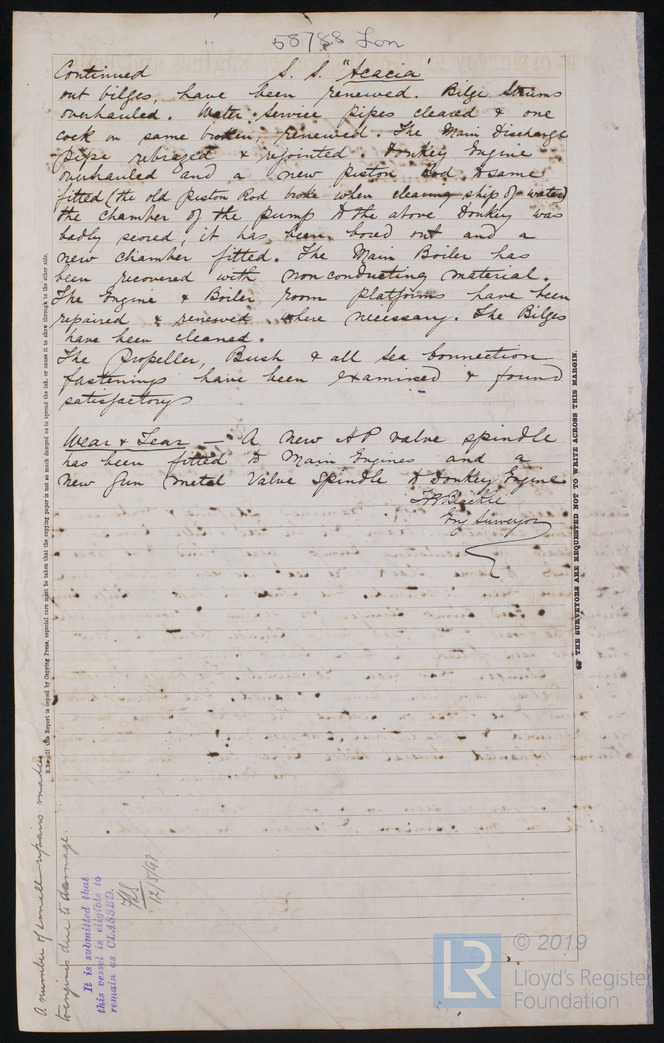 58788 Lon
Continued S. S. "Acacia"
out bilges, have been renewed. Bilge Strums
overhauled. Water service pipes cleared & one
cock on same broken, renewed. The Main Discharge
pipe rebrazed & rejointed. Donkey Engine
overhauled and a new piston Rod to same
fitted (the old piston Rod broke when clearing ship of water)
the chamber of the pump to the above Donkey was
badly scored, it has been bored out and a
new chamber fitted. The Main Boiler has
been recovered with non conducting material.
The Engine & Boiler room platforms have been
repaired & renewed where necessary. The Bilges
have been cleaned.
The Propeller, Bush & all sea connection
fastenings have been examined & found
satisfactory
Wear & Tear — A new HP valve spindle
has been fitted to Main Engines and a
new Gun metal Valve Spindle to Donkey Engine
Eng Surveyor
N.B.—If this Report is copied by Copying Press, especial care must be taken that the copying paper is not so much damped as to spread the ink, or cause it to show through to the other side.
THE SURVEYORS ARE REQUESTED NOT TO WRITE ACROSS THIS MARGIN.
A number of small repairs made
to engines due to damage.
It is submitted that
this vessel is eligible to
remain as CLASSED.
12/5/97
LR
© 2019
Lloyd's Register
Foundation